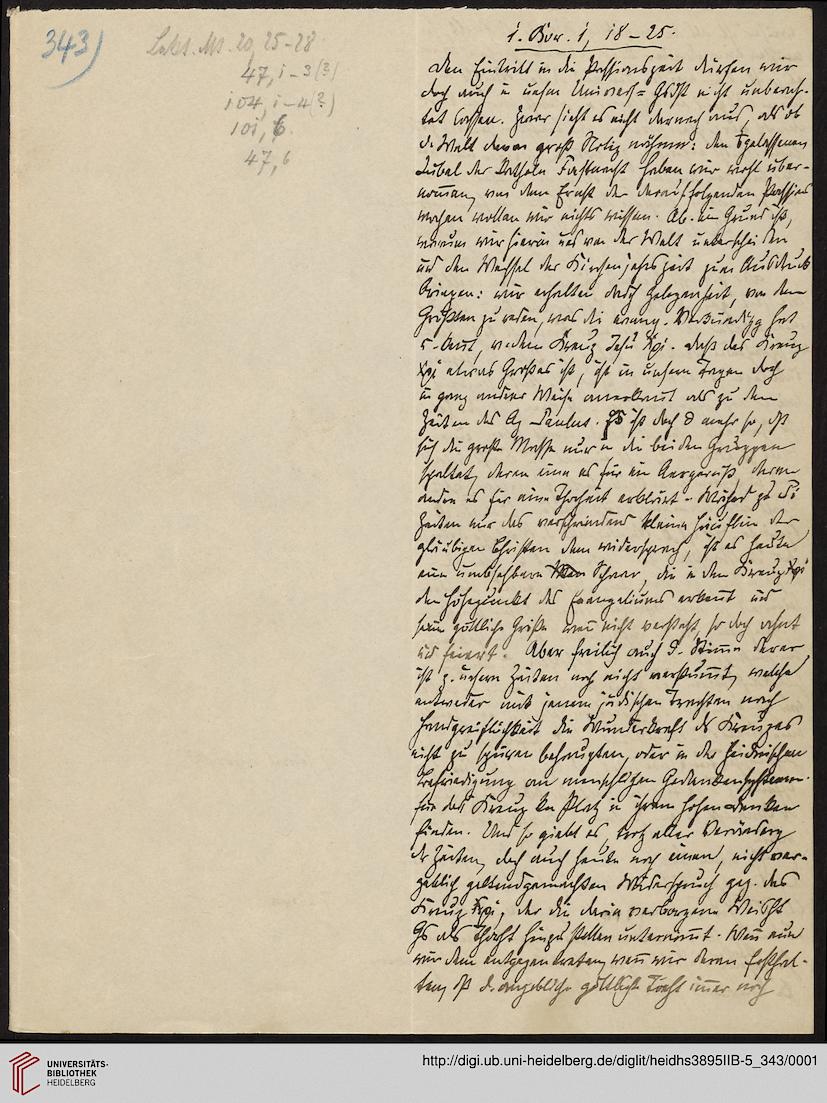 343)
Lekt. Mt. 20, 25-28
47, 1-3(?)
104, 1-4(?)
101, 6.
47, 6
1. Kor. 1, 18-25.
Den Eintritt in die Passionszeit dürfen wir
doch auch in unserm Universitäts=Gdst nicht unbeach-
tet lassen. Zwar sieht es nicht darnach aus, als ob
d. Welt davon groß Notiz nähme: den
Jubel der Fastnacht haben wir wohl über-
nommen, von dem Ernst der darauffolgenden Passions
wochen wollen wir nichts wissen. Ab. ein Grund ist,
warum wir hierin uns von der Welt unterscheiden
und den Wechsel der Kirchenjahrszeit zum Ausdruck
bringen: wir erhalten dadch Gelegenheit, von dem
Größten zu reden, was die evang. Verkündigg hat
v. dem Kreuz Jesu Xpi. daß das Kreuz
Xpi etwas Großes ist, ist in unsern Tagen doch
in ganz anderer Weise anerkannt als zu den
Zeiten des Ap. Paulus. Es ist doch mehr so, dß
sich die große Masse nur in die beiden Gruppen
spaltet, deren eine es für ein Aergerniß, deren
andre es für eine Thorheit erklärt.
Zeiten nur das verschwindend kleine Häuflein der
gläubigen Christen dem widersprach, ist es heute
eine unabsehbare Schaar, die in dem Kreuz Xpi
den Höhepunkt des Evangeliums erkennt und
seine göttliche Größe wenn nicht versteht, so doch ahnt
und feiert. Aber freilich auch d. Stimme derer
ist z. unsern Zeiten noch nicht verstummt, welche
entweder mit jenem jüdischen Trachten nach
Handgreiflichkeit die Wunderkraft des Kreuzes
nicht zu spüren behaupten, oder in der heidnischen
Befriedigung an menschlichen Gedankensystemen
für das Kreuz kn Platz in ihrem hohen Denken
finden. Und so giebt es, trotz aller Veränderg
der Zeiten, doch auch heute noch einen, nicht ver-
geblich geltendgemachten Widerspruch geg. das
Kreuz Xpi, der die darin verborgene Weisht
Gs als Thorht hinzustellen unternimmt. Wenn nun
wir dem entgegentreten, wenn wir daran festhal-
ten, dß d. angebliche göttliche Torht immer noch
UNIVERSITÄTS-
BIBLIOTHEK
HEIDELBERG
http://digi.ub.uni-heidelberg.de/diglit/heidhs3895IIB-5_343/0001